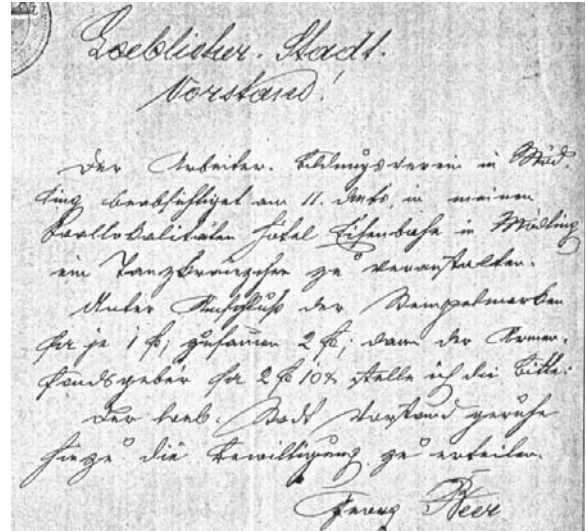 Loeblicher. Stadt.
Vorstand!
Der Arbeiter. Bildungsverein in Möd.
ling beabsichtiget am 11. dMts, in meinen
Saallokalitäten Hotel Eisenbahn in Mödling
ein Tanzkränzchen zu veranstalten.
Unter Anschluß der Stempelmarken
für je 1 f; zusammen 2 f; dann der Armen.
fondsgebür für 2 f 10 x stelle ich die Bitte:
Der loeb. Stadt Vorstand geruhe
hiezu die Bewilligung zu erteilen.
Georg